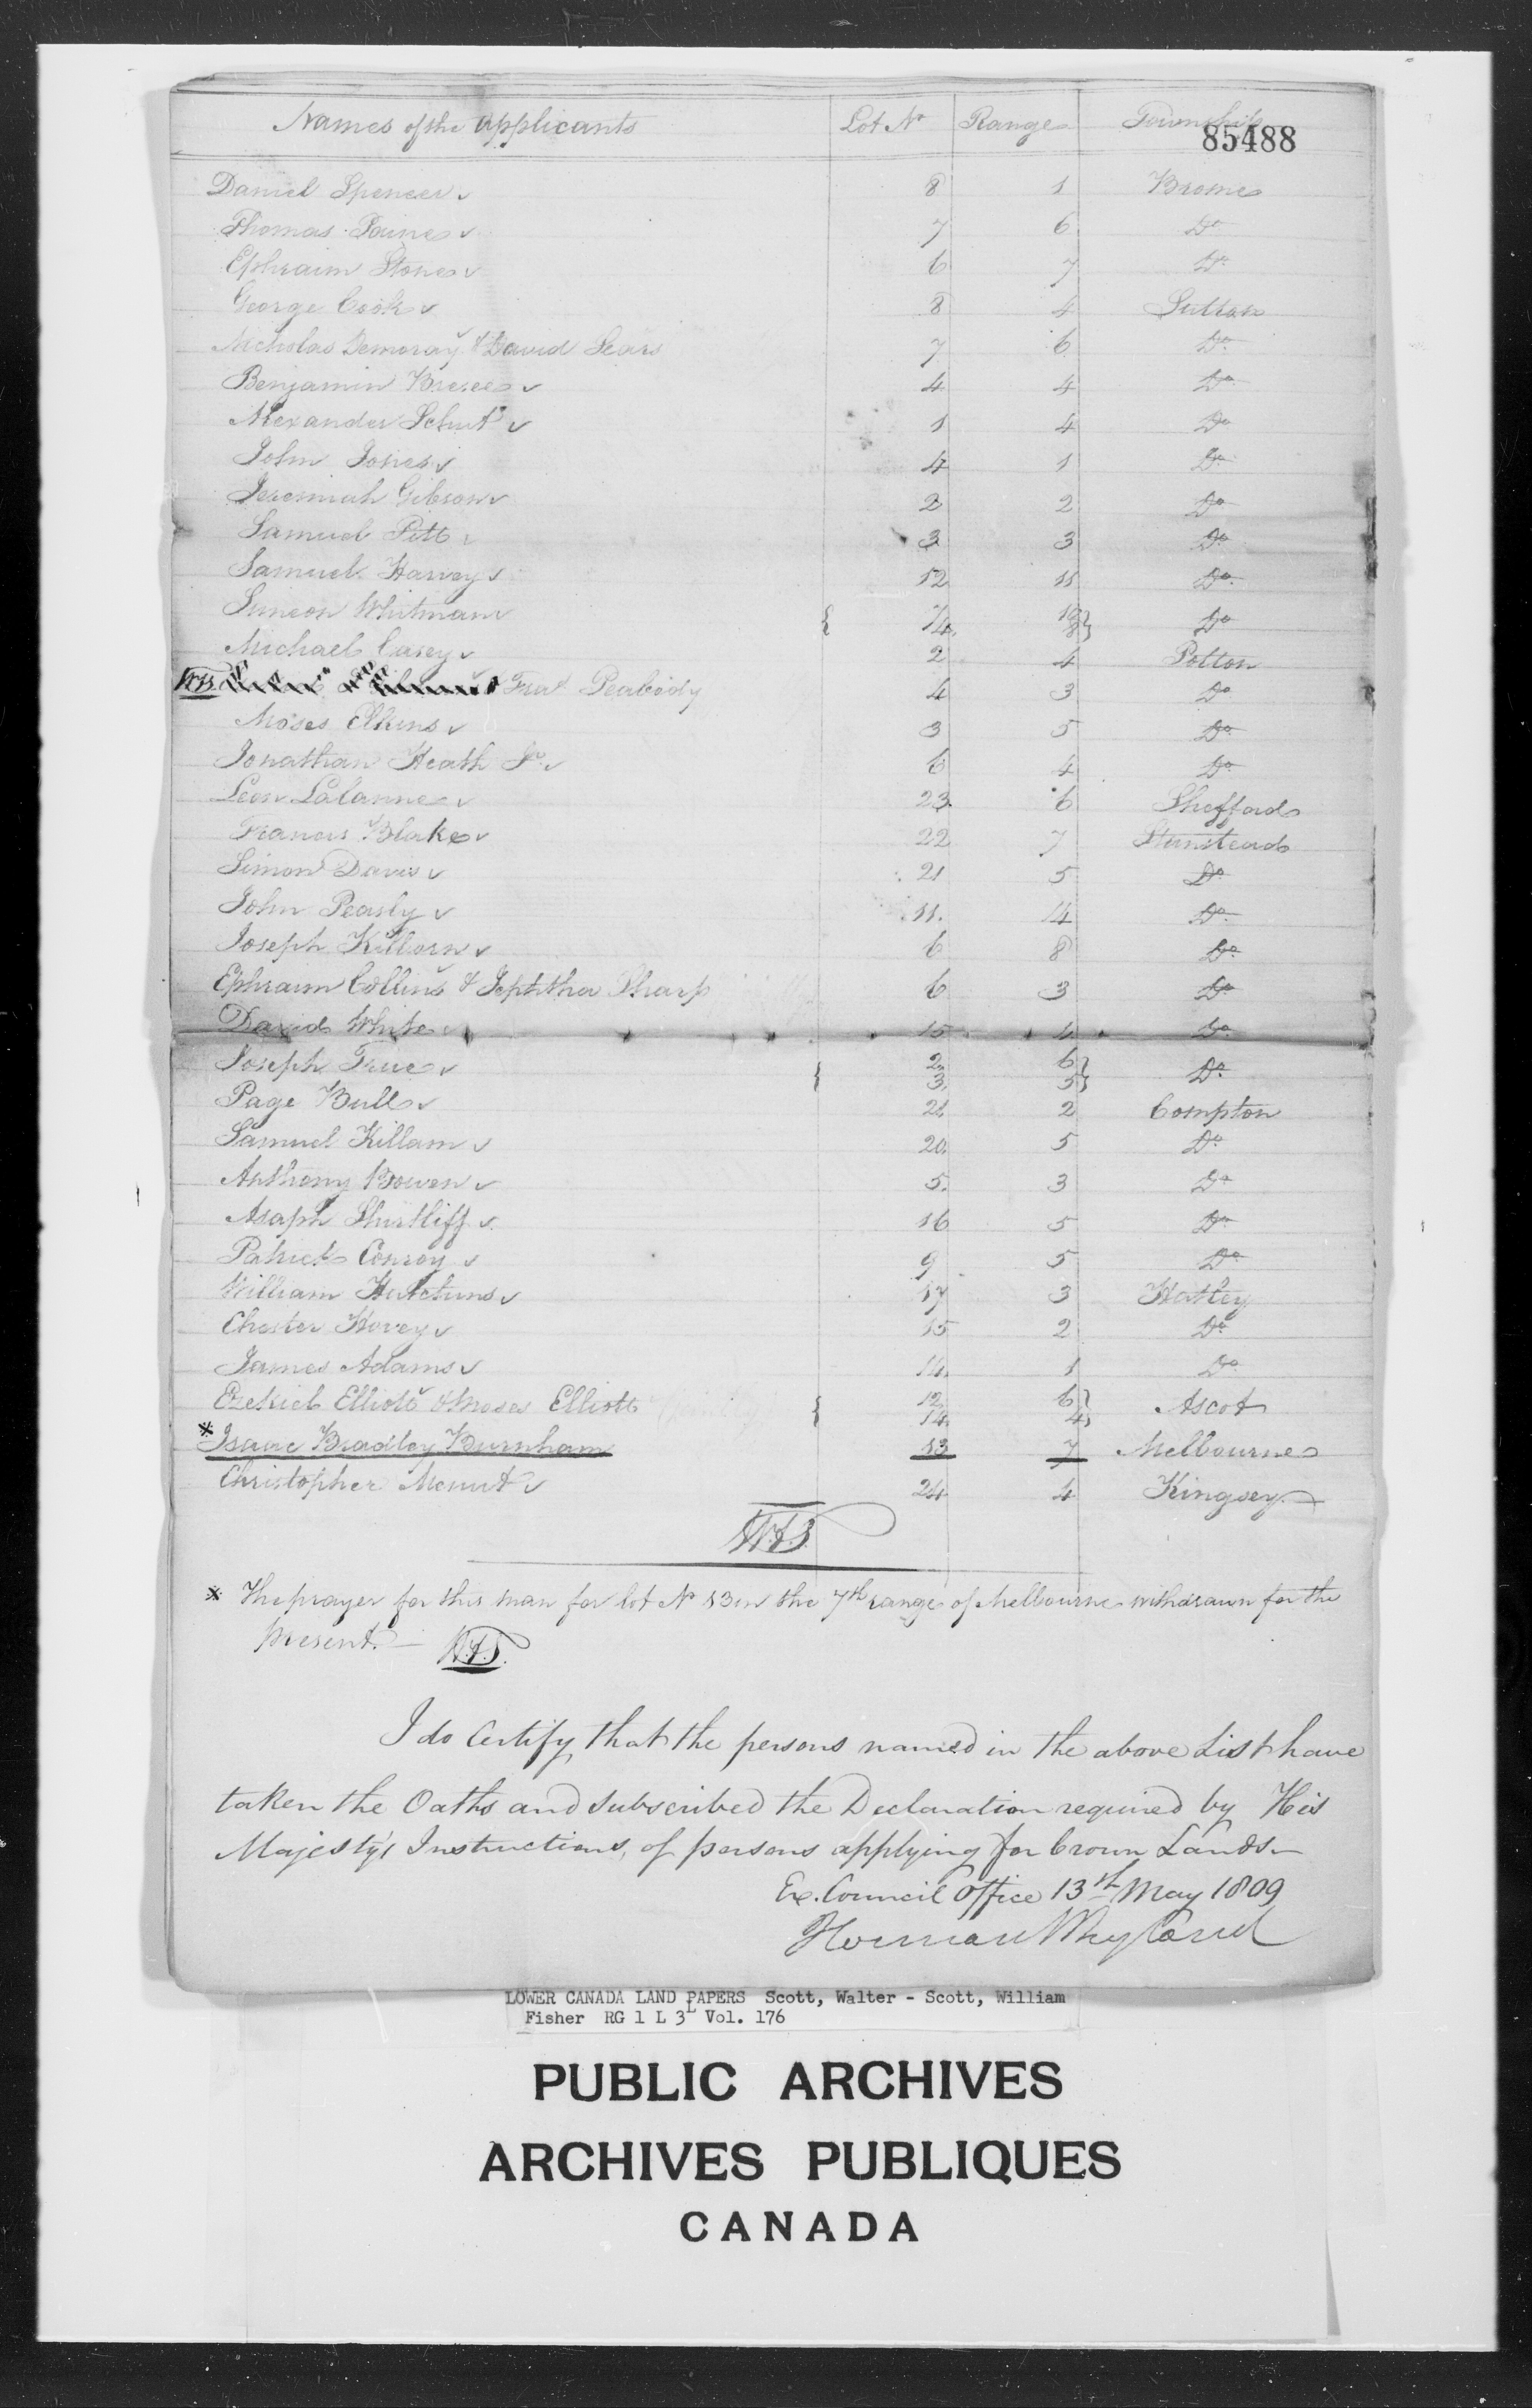 Names of the applicants Lot No Range Township
85488
Daniel Spencer 8 1 Brome
Thomas Paine 7 6 Do
Ephraim Stone 6 7 Do
George Cook 8 4 Sutton
Nicholas Demoray & David Sears 7 6 Do
Benjamin 4 4 Do
Alexander Schut 1 4 Do
John Jones 4 1 Do
Jeremiah Gibson 2 2 Do
Samuel Pitt 3 3 Do
Samuel Harvey 12 11 Do
Simeon Whitman { } Do
Michael Casey 2 4 Potton
Peabody 4 3 Do
Moses Elkins 3 5 Do
Jonathan Heath Jr. 6 4 Do
Leon Lalanne 23 6 Shefford
Francis Blake 22 7 Stanstead
Simon Davis 21 5 Do
John Peasly 11. 14 Do
Joseph Kilborn 6 8 Do
Ephraim Collins & Jephtha Sharp 6 3 Do
David White 15 4 Do
Joseph True { 2 6 } Do
3 5
Page Bull 21 2 Compton
Samuel Killam 20 5 Do
Anthony Bowen 5. 3 Do
Asaph Shurtliff 16 5 Do
Patrick Conroy 9 5 Do
William Hutchins 17 3 Hatley
Chester Hovey 15 2 Do
James Adams 14 1 Do
Ezekiel Elliott & Moses Elliott { 12 6 } Ascot
14 4
* Isaac Bradley Burnham 13 7 Melbourne
Christopher Menut 24 4 Kingsey
* The prayer for this man for lot No 13 in the 7th range of Melbourne withdrawn for the
present. —
I do Certify that the persons named in the above List have
taken the Oaths and subscribed the Declaration required by His
Majesty's Instructions, of persons applying for Crown Lands —
Ex. Council Office 13th May 1809
Herman W Ryland
LOWER CANADA LAND PAPERS Scott, Walter - Scott, William
Fisher RG 1 L 3L Vol. 176
PUBLIC ARCHIVES
ARCHIVES PUBLIQUES
CANADA